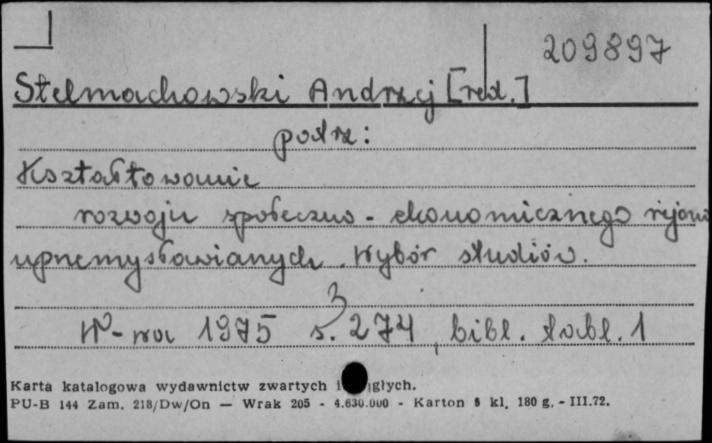 209897
Stelmachowski Andrzej [red.]
patrz:
Kształtowanie
rozwoju społeczno-ekonomicznego rejonów
uprzemysławianych. Wybór studiów.
3
W-wa 1975 s. 274, bibl. tabl. 1
Karta katalogowa wydawnictw zwartych i głych.
PU-B 144 Zam. 218/Dw/On — Wrak 205 - 4.630.000 - Karton 5 kl. 180 g. - III.72.